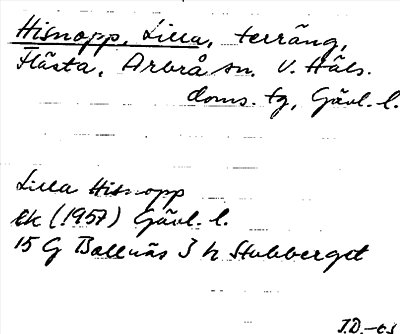 Hisnopp, Lilla, terräng,
Flästa, Arbrå sn. V. Häls.
doms. tg, Gävl. l.
Lilla Hisnopp
ek (1957) Gävl. l.
15 G Bollnäs 3 h Stubberget
J.D.-63